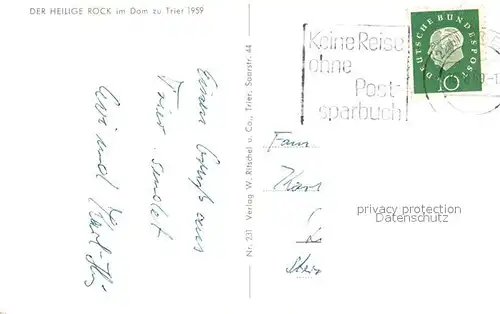 DER HEILIGE ROCK im Dom zu Trier 1959
Einen Gruß aus
Trier sendet
Nr. 231 Verlag W. Ritschel u. Co., Trier, Saarstr. 44
Keine Reise
ohne
Post-
sparbuch
DEUTSCHE BUNDESPOST
10
Fam
Karl
privacy protection
Datenschutz